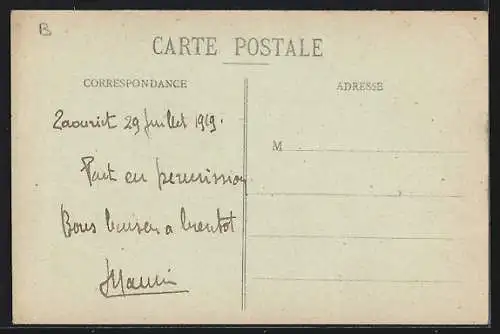 B
CARTE POSTALE
CORRESPONDANCE
ADRESSE
Taourirt 29 Juillet 1919.
M
Part en permission
Bons baisers a bientot